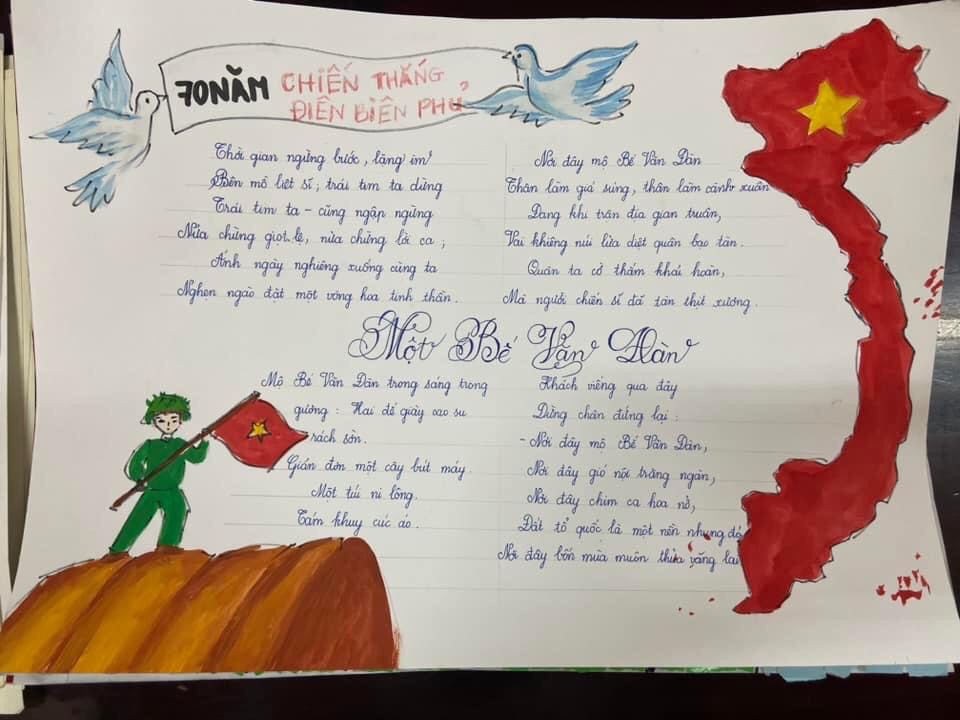 70 NĂM CHIẾN THẮNG
ĐIỆN BIÊN PHỦ
Thời gian ngừng bước, lặng im
Bên mồ liệt sĩ, trái tim ta dừng
Trái tim ta - cũng ngập ngừng
Nửa chừng giọt lệ, nửa chừng lời ca;
Ánh ngày nghiêng xuống cùng ta
Nghẹn ngào đặt một vòng hoa tinh thần.
Nơi đây mộ Bế Văn Đàn
Thân làm giá súng, thân làm cành xuân
Đang khi trận địa gian truân,
Vai khiêng núi lửa diệt quân bạo tàn.
Quân ta cờ thắm khải hoàn,
Mà người chiến sĩ đã tan thịt xương.
Mộ Bế Văn Đàn
Mộ Bế Văn Đàn trong sáng trong
gương: Hai đế giày cao su
rách sờn.
Giản đơn một cây bút máy.
Một túi ni lông.
Tám khuy cúc áo.
Khách viếng qua đây
Dừng chân đứng lại:
- Nơi đây mộ Bế Văn Đàn,
Nơi đây gió nội trăng ngàn,
Nơi đây chim ca hoa nở,
Đất tổ quốc là một nền nhung đỏ
Nơi đây bốn mùa muôn thửa vắng lai